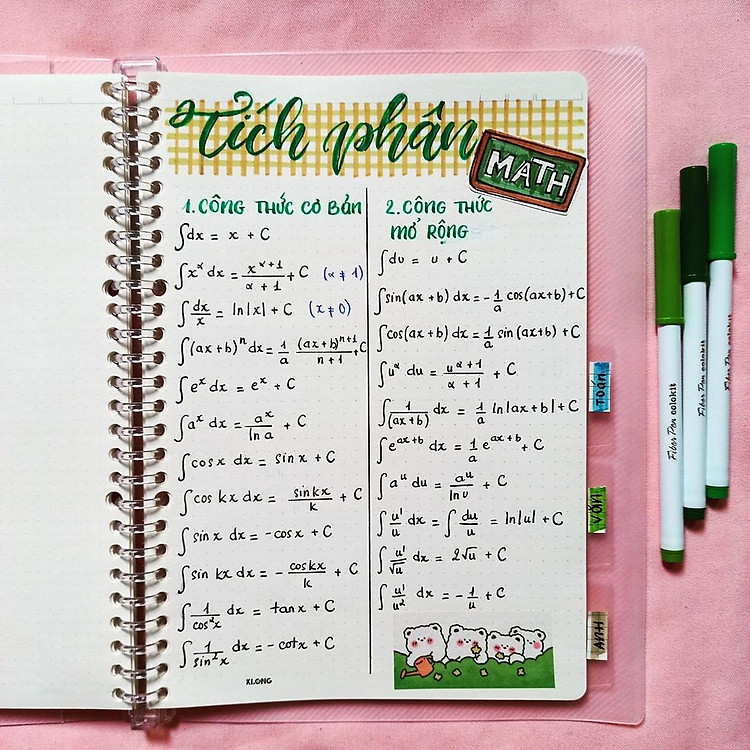 Tích phân
MATH
1. CÔNG THỨC CƠ BẢN
∫dx = x + C
∫x^α dx = x^(α+1)/(α+1) + C (α ≠ 1)
∫dx/x = ln|x| + C (x ≠ 0)
∫(ax+b)^n dx = 1/a (ax+b)^(n+1)/(n+1) + C
∫e^x dx = e^x + C
∫a^x dx = a^x/(ln a) + C
∫cosx dx = sinx + C
∫cos kx dx = sin kx/k + C
∫sinx dx = -cosx + C
∫sin kx dx = - cos kx/k + C
∫1/(cos²x) dx = tanx + C
∫1/(sin²x) dx = -cotx + C
XLONG
2. CÔNG THỨC
MỞ RỘNG
∫du = u + C
∫sin(ax+b) dx = -1/a cos(ax+b) + C
∫cos(ax+b) dx = 1/a sin(ax+b) + C
∫u^α du = u^(α+1)/(α+1) + C
∫1/(ax+b) dx = 1/a ln|ax+b| + C
∫e^(ax+b) dx = 1/a e^(ax+b) + C
∫a^u du = a^u/(ln u) + C
∫u'/u dx = ∫du/u = ln|u| + C
∫u'/√u dx = 2√u + C
∫u'/u² dx = -1/u + C
TOÁN
VĂN
ANH
Fiber Pen colokit
Fiber Pen colokit
Fiber Pen colokit